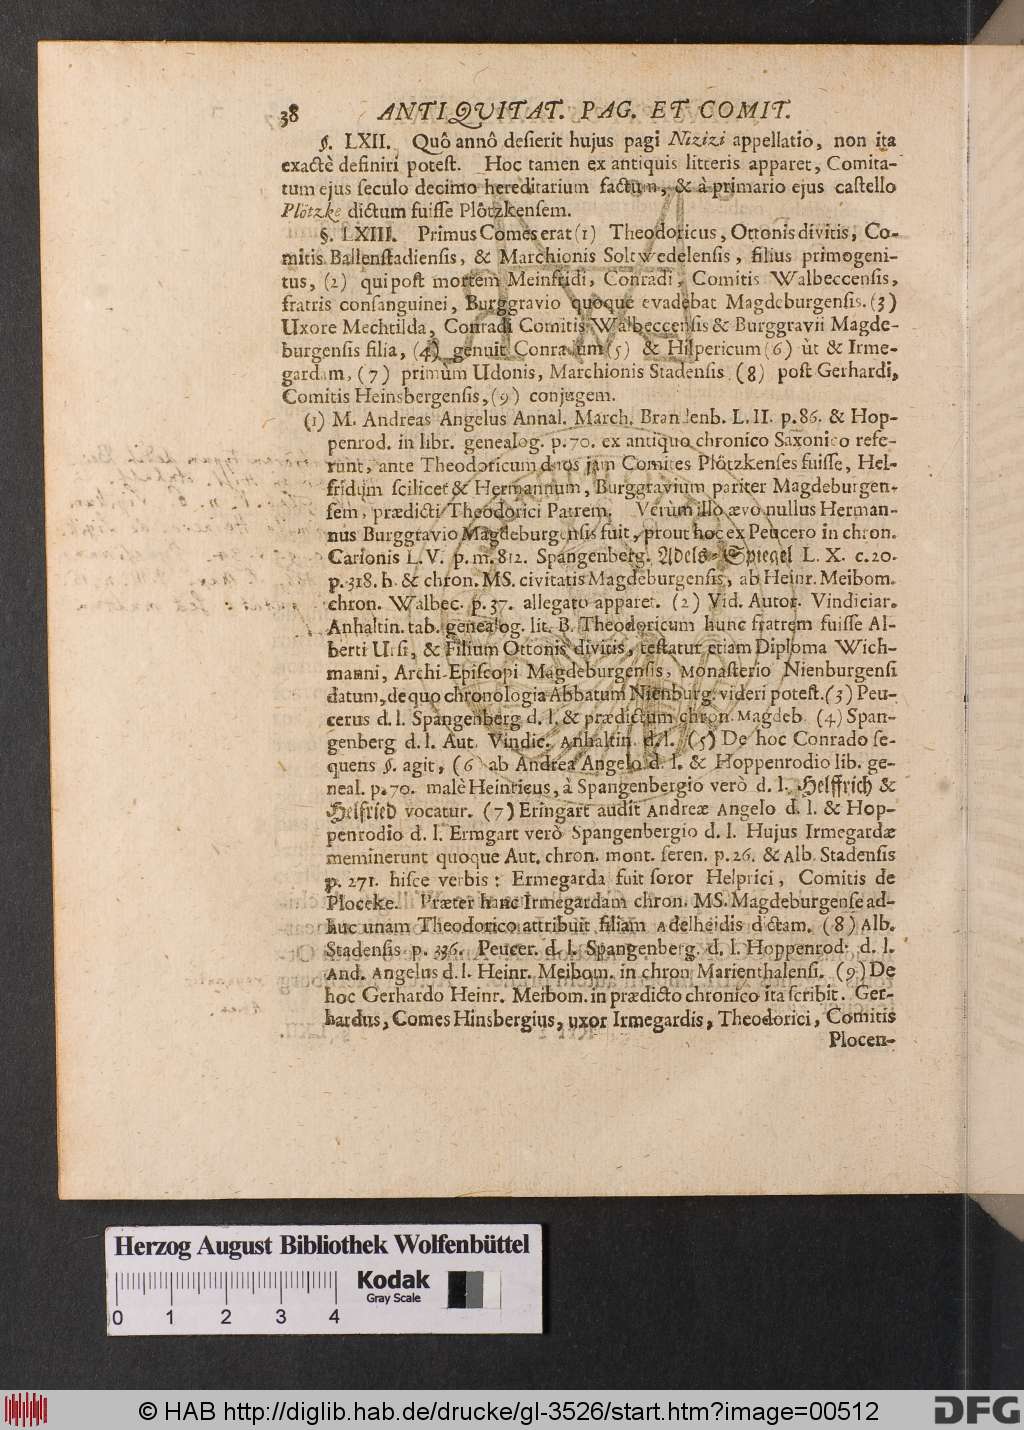 38 ANTIQUITAT. PAG. ET COMIT.
§. LXII. Quô annô desierit hujus pagi Nizizi appellatio, non ita
exactè definiri potest. Hoc tamen ex antiquis litteris apparet, Comita-
tum ejus seculo decimo hereditarium factum, & à primario ejus castello
Plötzke dictum fuisse Plötzkensem.
§. LXIII. Primus Comes erat (1) Theodoricus, Ottonis divitis, Co-
mitis Ballenstadiensis, & Marchionis Soltwedelensis, filius primogeni-
tus, (2) qui post mortem Meinfridi, Conradi, Comitis Walbeccensis,
fratris consanguinei, Burggravio quoque evadebat Magdeburgensis. (3)
Uxore Mechtilda, Conradi Comitis Walbeccensis & Burggravii Magde-
burgensis filia, (4) genuit Conradum (5) & Hilpericum (6) ùt & Irme-
gardam, (7) primùm Udonis, Marchionis Stadensis (8) post Gerhardi,
Comitis Heinsbergensis, (9) conjugem.
(1) M. Andreas Angelus Annal. March. Brandenb. L. II. p. 86. & Hop-
penrod. in libr. genealog. p. 70. ex antiquo chronico Saxonico refe-
runt, ante Theodoricum duos jam Comites Plötzkenses fuisse, Hel-
fridum scilicet & Hermannum, Burggravium pariter Magdeburgen-
sem, prædicti Theodorici Patrem. Verùm illo ævo nullus Herman-
nus Burggravio Magdeburgensis fuit, prout hoc ex Peucero in chron.
Carionis L. V. p. m. 812. Spangenberg. Adels-Spiegel L. X. c. 20.
p. 318. h. & chron. MS. civitatis Magdeburgensis, ab Heinr. Meibom.
chron. Walbec. p. 37. allegato apparet. (2) Vid. Autor. Vindiciar.
Anhaltin. tab. genealog. lit. B. Theodoricum hunc fratrem fuisse Al-
berti Ursi, & Filium Ottonis divitis, testatur etiam Diploma Wich-
manni, Archi-Episcopi Magdeburgensis, Monasterio Nienburgensi
datum, de quo chronologia Abbatum Nienburg. videri potest. (3) Peu-
cerus d. l. Spangenberg d. l. & prædictum chron. Magdeb. (4) Span-
genberg d. l. Aut. Vindic. Anhaltin. d. l. (5) De hoc Conrado se-
quens §. agit, (6 ab Andrea Angelo d. l. & Hoppenrodio lib. ge-
neal. p. 70. malè Heinricus, à Spangenbergio verò d. l. Helffrich &
Helfried vocatur. (7) Eringart audit Andreæ Angelo d. l. & Hop-
penrodio d. l. Ermgart verò Spangenbergio d. l. Hujus Irmegardæ
meminerunt quoque Aut. chron. mont. seren. p. 26. & Alb. Stadensis
p. 271. hisce verbis: Ermegarda fuit soror Helprici, Comitis de
Ploceke. Præter hanc Irmegardam chron. MS. Magdeburgense ad-
huc unam Theodorico attribuit filiam Adelheidis dictam. (8) Alb.
Stadensis p. 336. Peucer. d. l. Spangenberg. d. l. Hoppenrod. d. l.
And. Angelus d. l. Heinr. Meibom. in chron Marienthalensi. (9) De
hoc Gerhardo Heinr. Meibom. in prædicto chronico ita scribit. Ger-
hardus, Comes Hinsbergius, uxor Irmegardis, Theodorici, Comitis
Plocen-
Herzog August Bibliothek Wolfenbüttel
Kodak
Gray Scale
0 1 2 3 4
© HAB http://diglib.hab.de/drucke/gl-3526/start.htm?image=00512
DFG